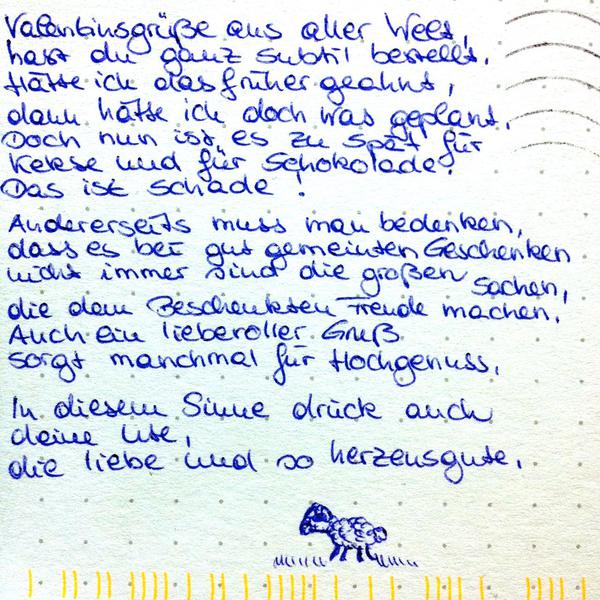 Valentinsgrüße aus aller Welt,
hast du ganz subtil bestellt.
Hätte ich das früher geahnt,
dann hätte ich doch was geplant.
Doch nun ist es zu spät für
Kekse und für Schokolade.
Das ist schade!
Andererseits muss man bedenken,
dass es bei gut gemeinten Geschenken
nicht immer sind die großen Sachen,
die dem Beschenkten Freude machen.
Auch ein liebevoller Gruß
sorgt manchmal für Hochgenuss.
In diesem Sinne drück auch
deine Ute,
die liebe und so herzensgute.